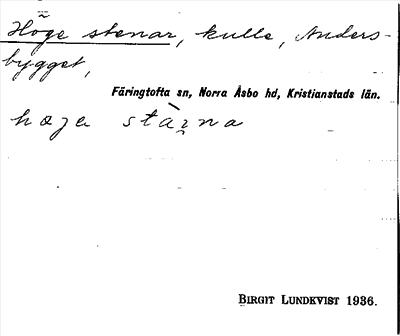 Höge stenar, kulle, Anders-
bygget,
Färingtofta sn, Norra Åsbo hd, Kristianstads län.
høze stàrna
BIRGIT LUNDKVIST 1936.